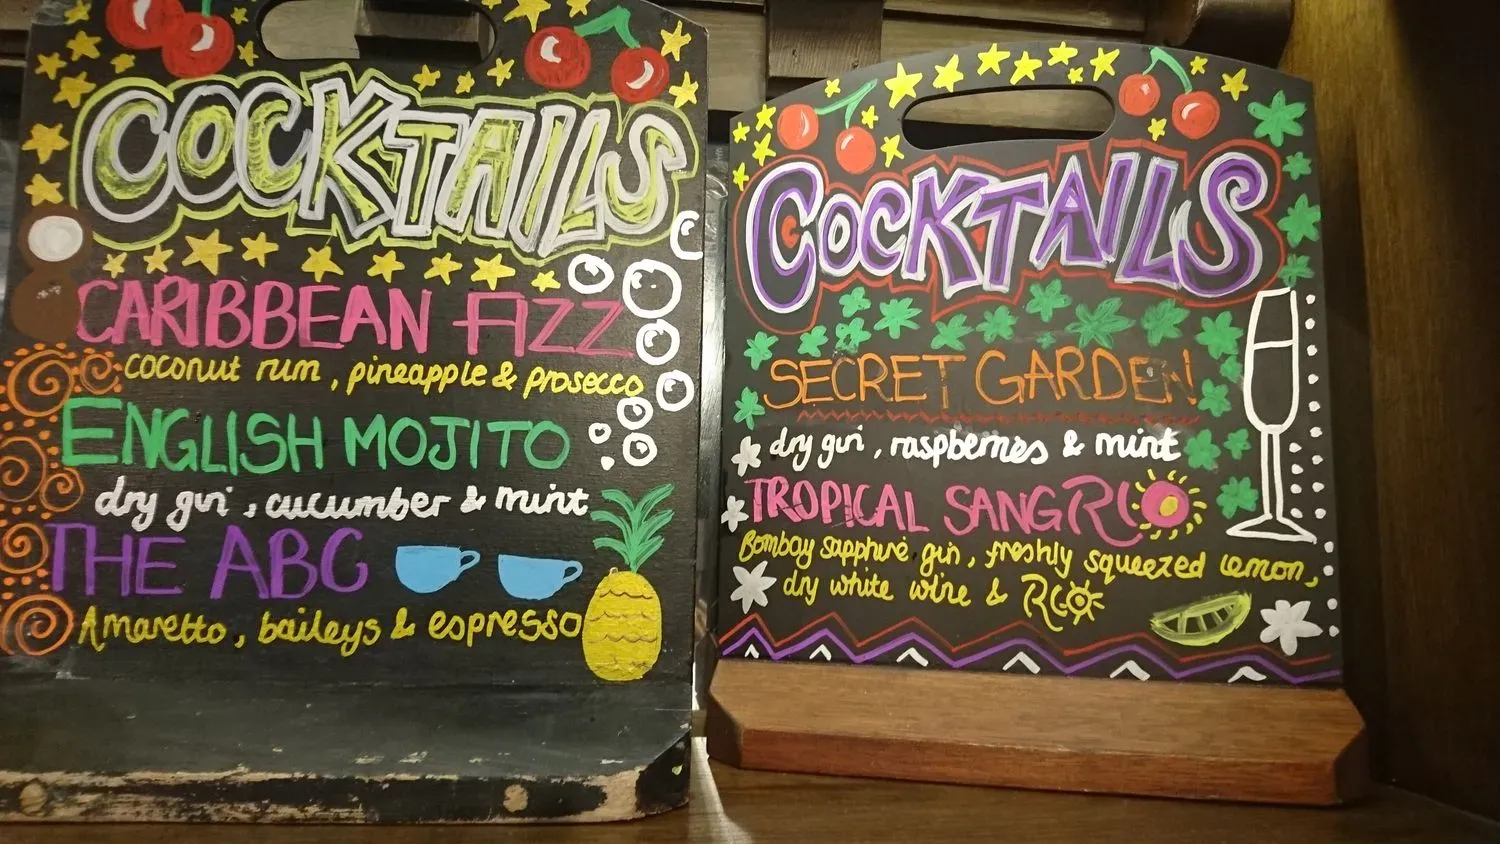 COCKTAILS
CARIBBEAN FIZZ
coconut rum, pineapple & prosecco
ENGLISH MOJITO
dry gin, cucumber & mint
THE ABC
Amaretto, baileys & espresso
COCKTAILS
SECRET GARDEN
dry gin, raspberries & mint
TROPICAL SANGRIO
Bombay sapphire gin, freshly squeezed lemon,
dry white wine & RIO